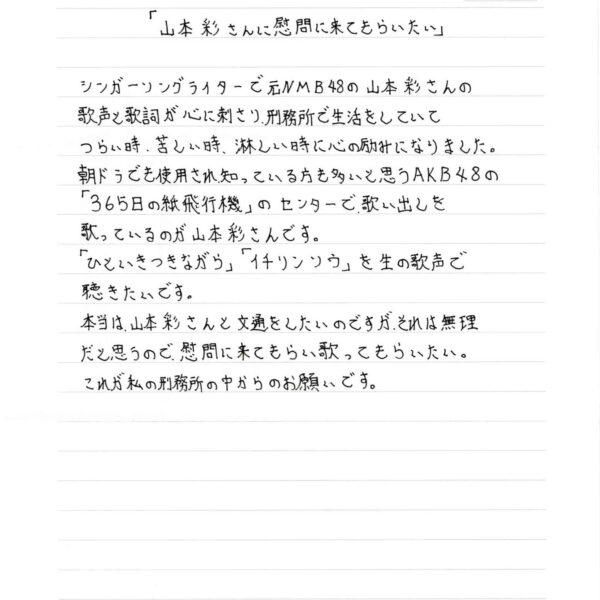 「山本彩さんに慰問に来てもらいたい」
シンガーソングライターで元NMB48の山本彩さんの
歌声と歌詞が心に刺さり、刑務所で生活をしていて
つらい時、苦しい時、淋しい時に心の励みになりました。
朝ドラでも使用され、知っている方も多いと思うAKB48の
「365日の紙飛行機」のセンターで、歌い出しを
歌っているのが山本彩さんです。
「ひといきつきながら」「イチリンソウ」を生の歌声で
聴きたいです。
本当は、山本彩さんと文通をしたいのですが、それは無理
だと思うので、慰問に来てもらい歌ってもらいたい。
これが私の刑務所の中からのお願いです。